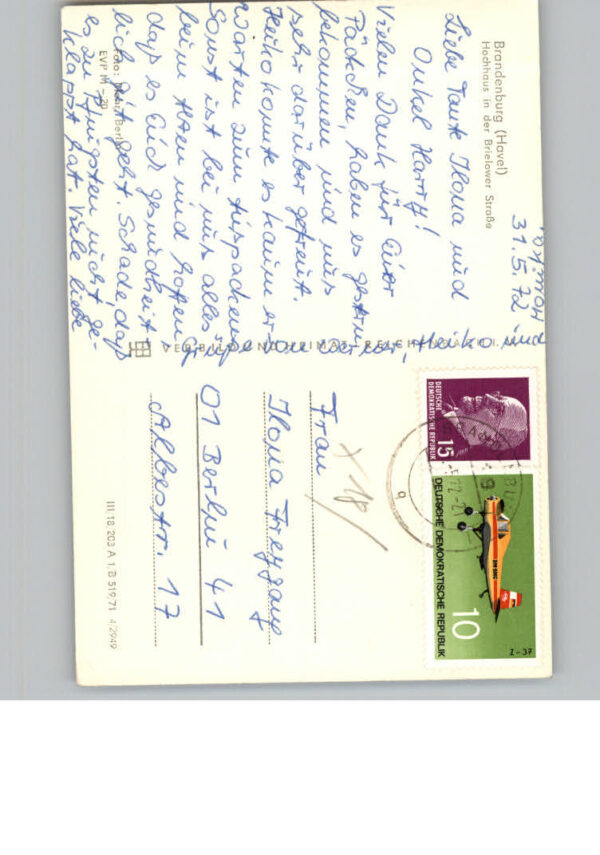 Brandenburg (Havel)
Hochhaus in der Brielower Straße
31.5.72
Liebe Tante Ilona und
Onkel Harry!
Vielen Dank für Euer
Päckchen, haben es gestern
bekommen und uns
sehr darüber gefreut.
Heiko konnte es kaum er-
warten zum Auspacken.
Sonst ist bei uns alles
beim Alten und hoffen
daß es Euch gesundheit-
lich gut geht. Schade, daß
es zu Pfingsten nicht ge-
klappt hat. Viele liebe
von Heiko und
Foto:
EVP M -,20
VERB BILD UND HEIMAT REICHENBACH I. V.
Frau
Ilona Freygang
01 Berlin 41
Albestr. 17
III 18 203 A 1. B 519,71 4/2949
DEUTSCHE
DEMOKRATISCHE REPUBLIK
15
DEUTSCHE DEMOKRATISCHE REPUBLIK
10
Z-37